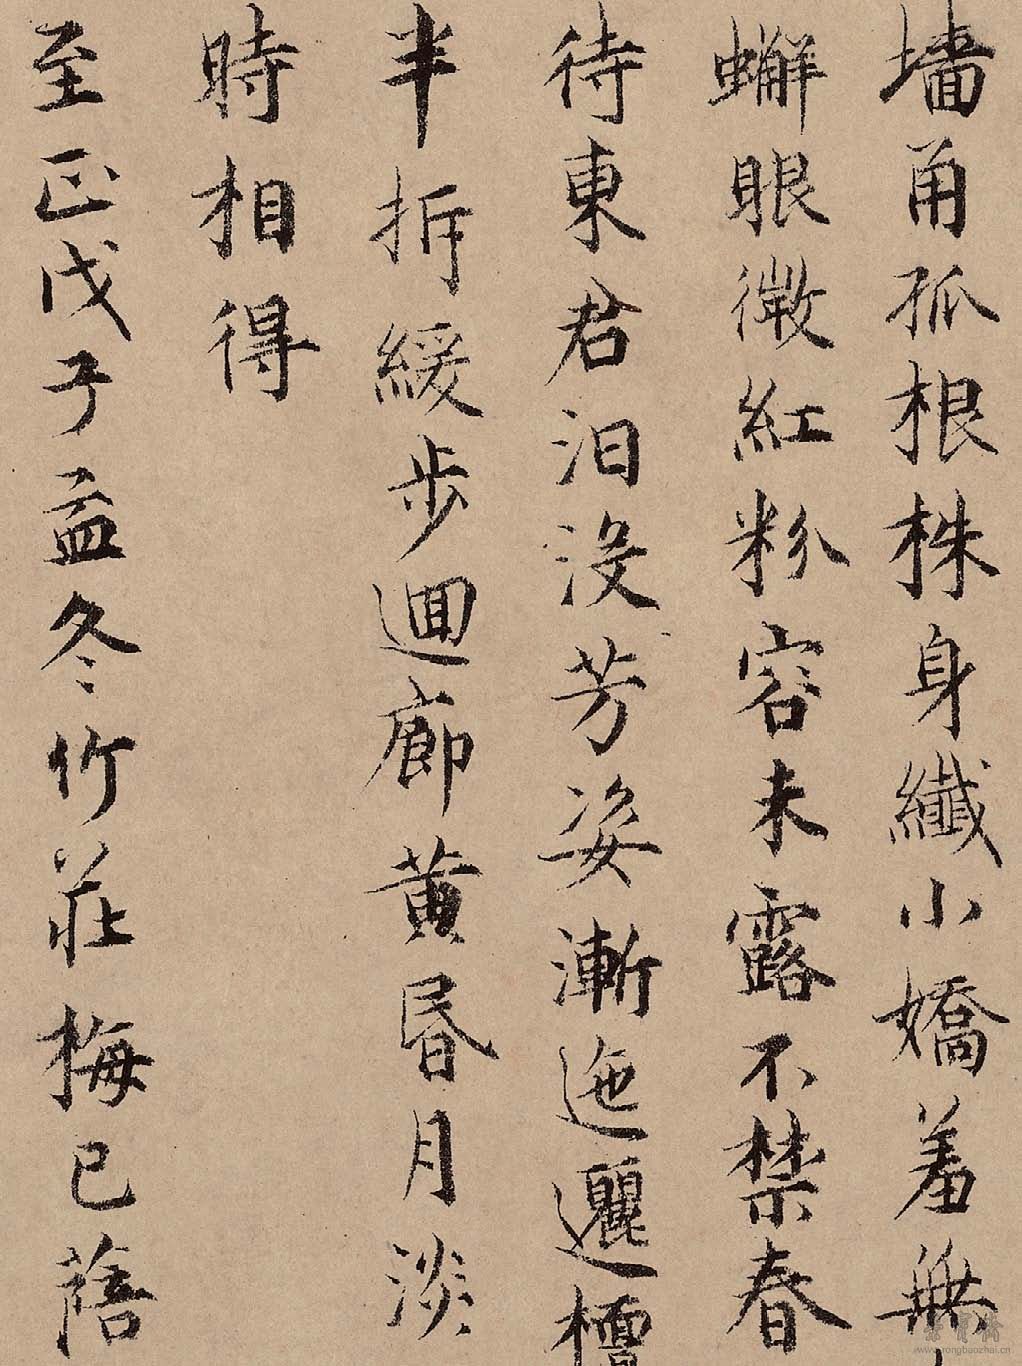 墻甪孤根株身纖小嬌羞無
蠏眼微紅粉容未露不禁春
待東君汩没芳姿漸迤邐檀
半拆緩步迴廊黄昏月淡
時相得
至正戊子孟冬竹莊梅已蓓
www.rongbaozhai.cn